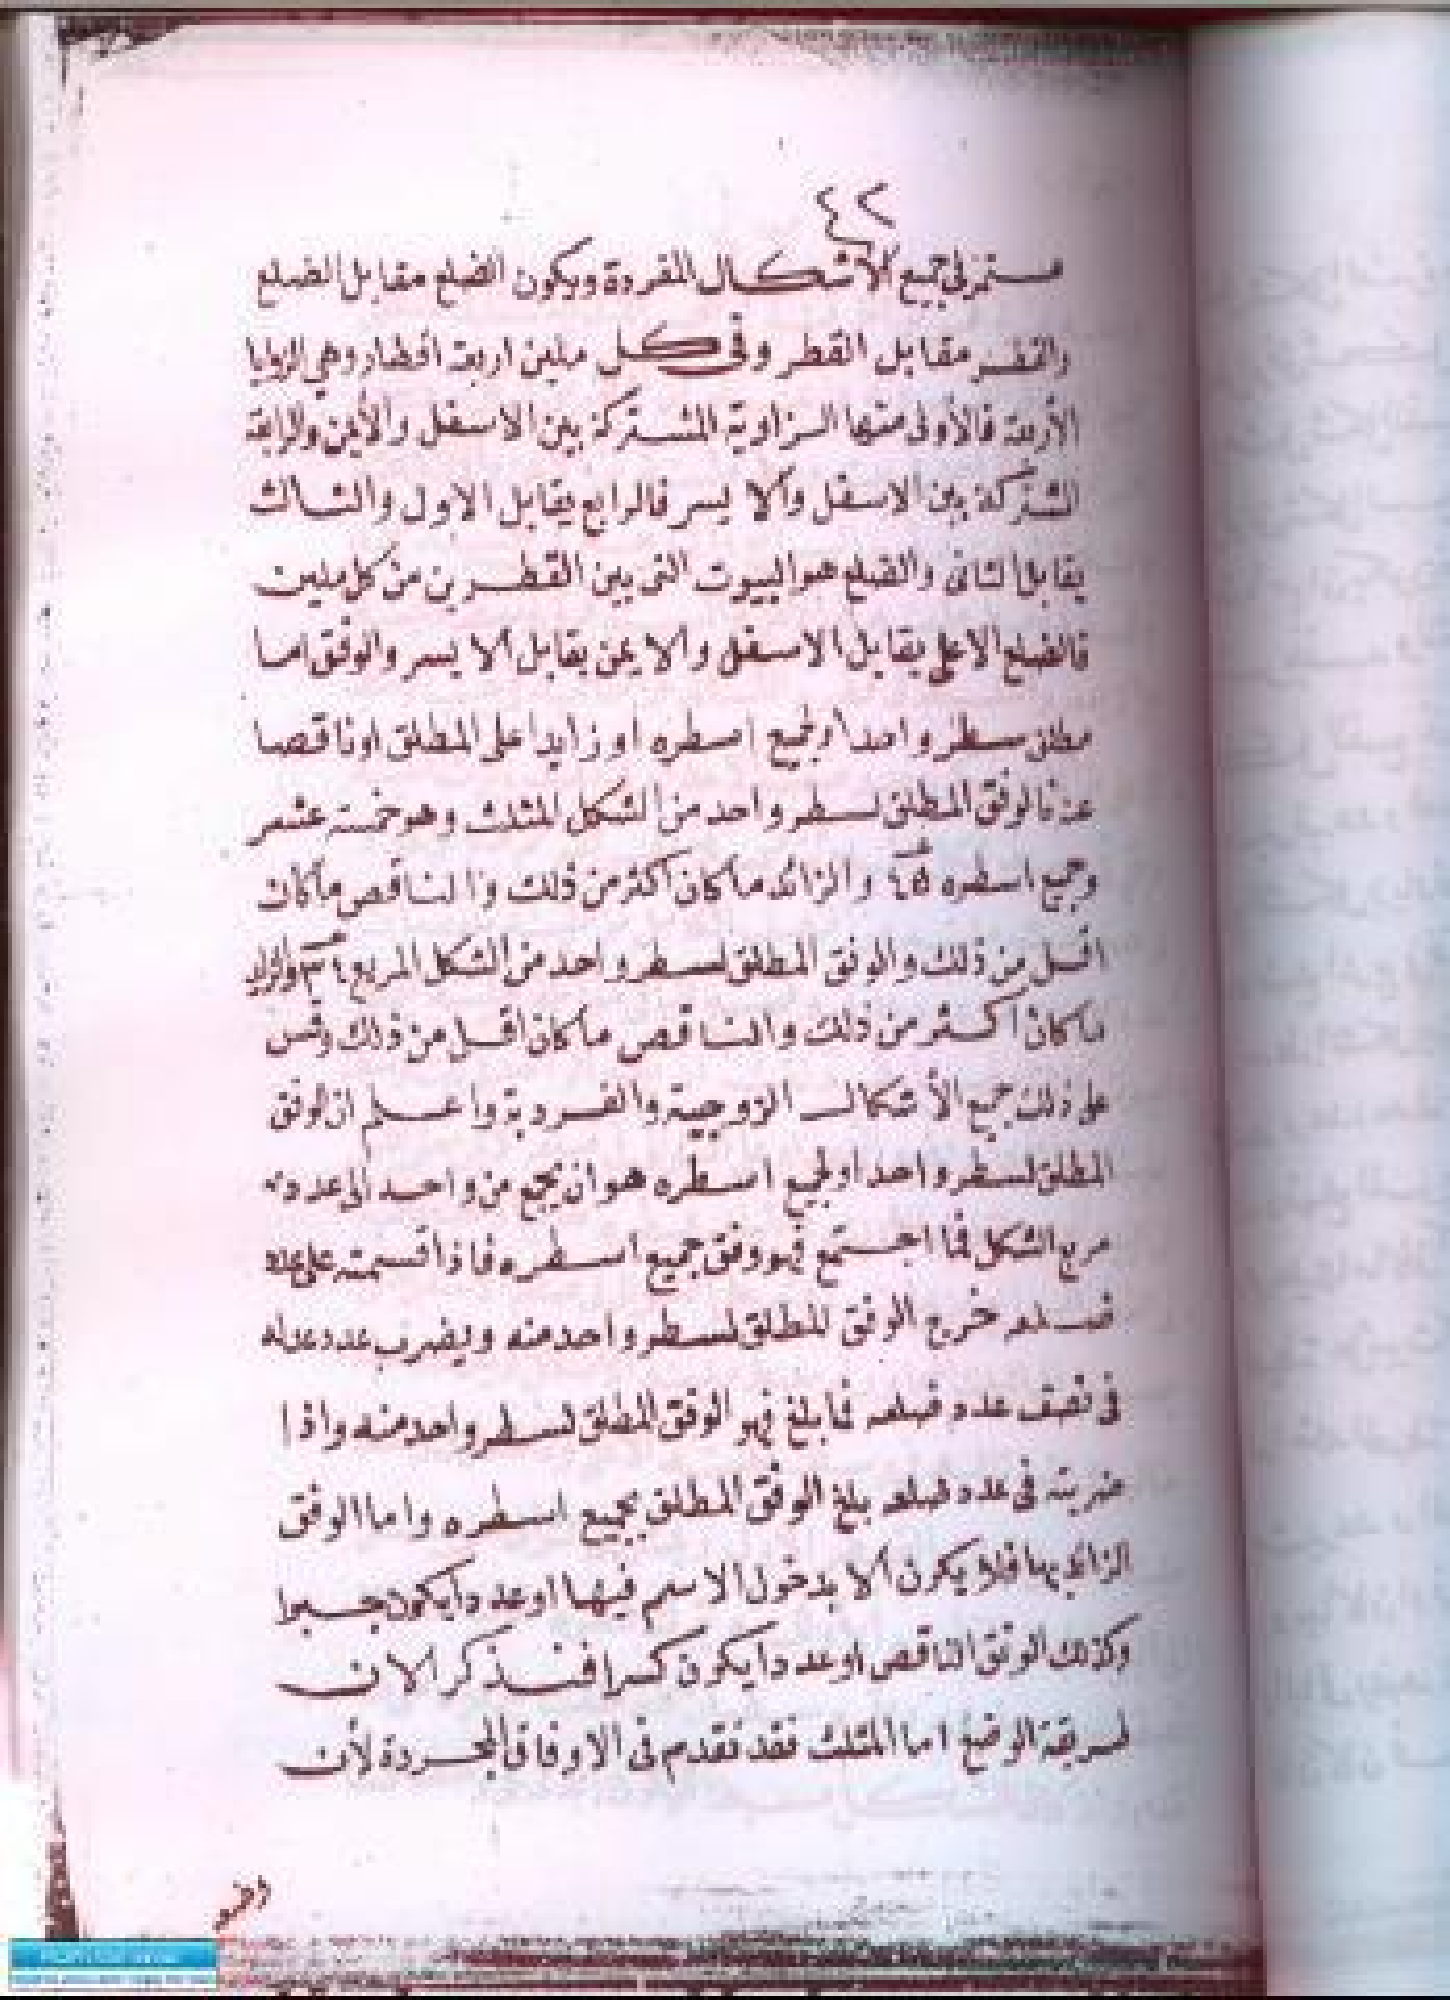 ٤٢
مستمر في جميع الأشكال المفردة ويكون الضلع مقابل الضلع
والقطر مقابل القطر وفي كل ملبن اربعة اقطار وهي الزوايا
الأربعة فالأولى منها الزاوية المشتركة بين الاسفل والأيمن والرابعة
المشتركة بين الاسفل والايسر فالرابع يقابل الاول والثالث
يقابل الثاني والضلع هو البيوت التي بين القطرين من كل ملبن
فالضلع الاعلى يقابل الاسفل والايمن يقابل الايسر والوفق اما
مطلق سطر واحد او لجميع اسطره او زايدا على المطلق او ناقصا
عنه فالوفق المطلق لسطر واحد من الشكل المثلث وهو خمسة عشر
وجميع اسطره ٤٥ والزائد ما كان اكثر من ذلك والناقص ما كان
اقل من ذلك والوفق المطلق لسطر واحد من الشكل المربع ٣٤ والزايد
ما كان اكثر من ذلك والناقص ما كان اقل من ذلك وقس
على ذلك جميع الأشكال الزوجية والفردية واعلم ان الوفق
المطلق لسطر واحد او لجميع اسطره هو ان يجمع من واحد الى عدد
مربع الشكل فما اجتمع فهو وفق جميع اسطره فاذا قسمته على عدد
ضلعه خرج الوفق المطلق لسطر واحد منه ويضرب عدد عدله
في نصف عدد ضلعه فما بلغ فهو الوفق المطلق لسطر واحد منه واذا
ضربته في عدد ضلعه بلغ الوفق المطلق بجميع اسطره واما الوفق
الزائد بها فلا يكون الا بدخول الاسم فيها او عددا يكون جبرا
وكذلك الوفق الناقص او عددا يكون كسرا فنذكر الان
طريقة الوضع اما المثلث فقد تقدم في الاوفاق المجردة لأن